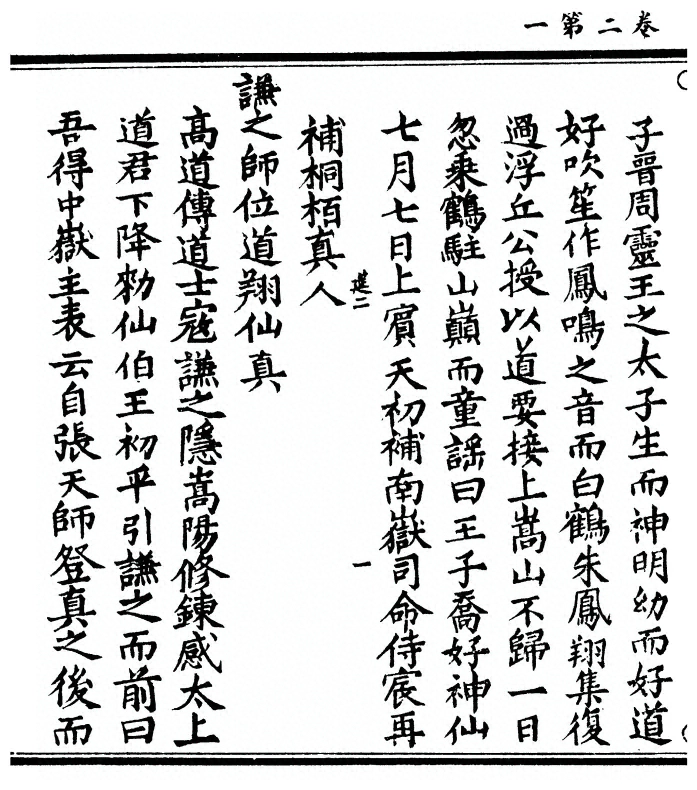 卷二第一
子晉周靈王之太子生而神明幼而好道
好吹笙作鳳鳴之音而白鶴朱鳳翔集復
遇浮丘公授以道要接上嵩山不歸一日
忽乘鶴駐山巔而童謡曰王子喬好神仙
七月七日上賓天初補南嶽司命侍宸再
補桐栢真人
謙之師位道翔仙真
高道傳道士寇謙之隱嵩陽修鍊感太上
道君下降勑仙伯王初平引謙之而前曰
吾得中嶽主表云自張天師登真之後而
一